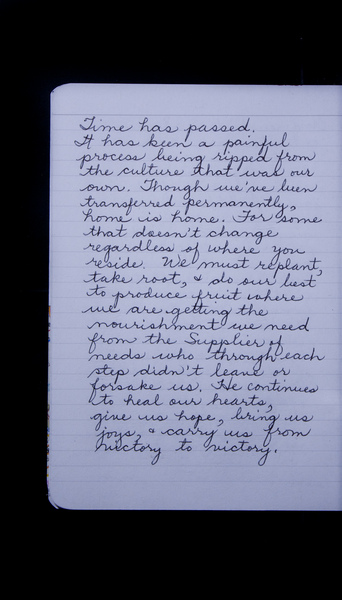 Time has passed.
It has been a painful
process being ripped from
the culture that was our
own. Though we've been
transferred permanently,
home is home. For some
that doesn't change
regardless of where you
reside. We must replant,
take root, & do our best
to produce fruit where
we are getting the
nourishment we need
from the Supplier of
needs who through each
step didn't leave or
forsake us. He continues
to heal our hearts,
give us hope, bring us
joys, & carry us from
victory to victory.